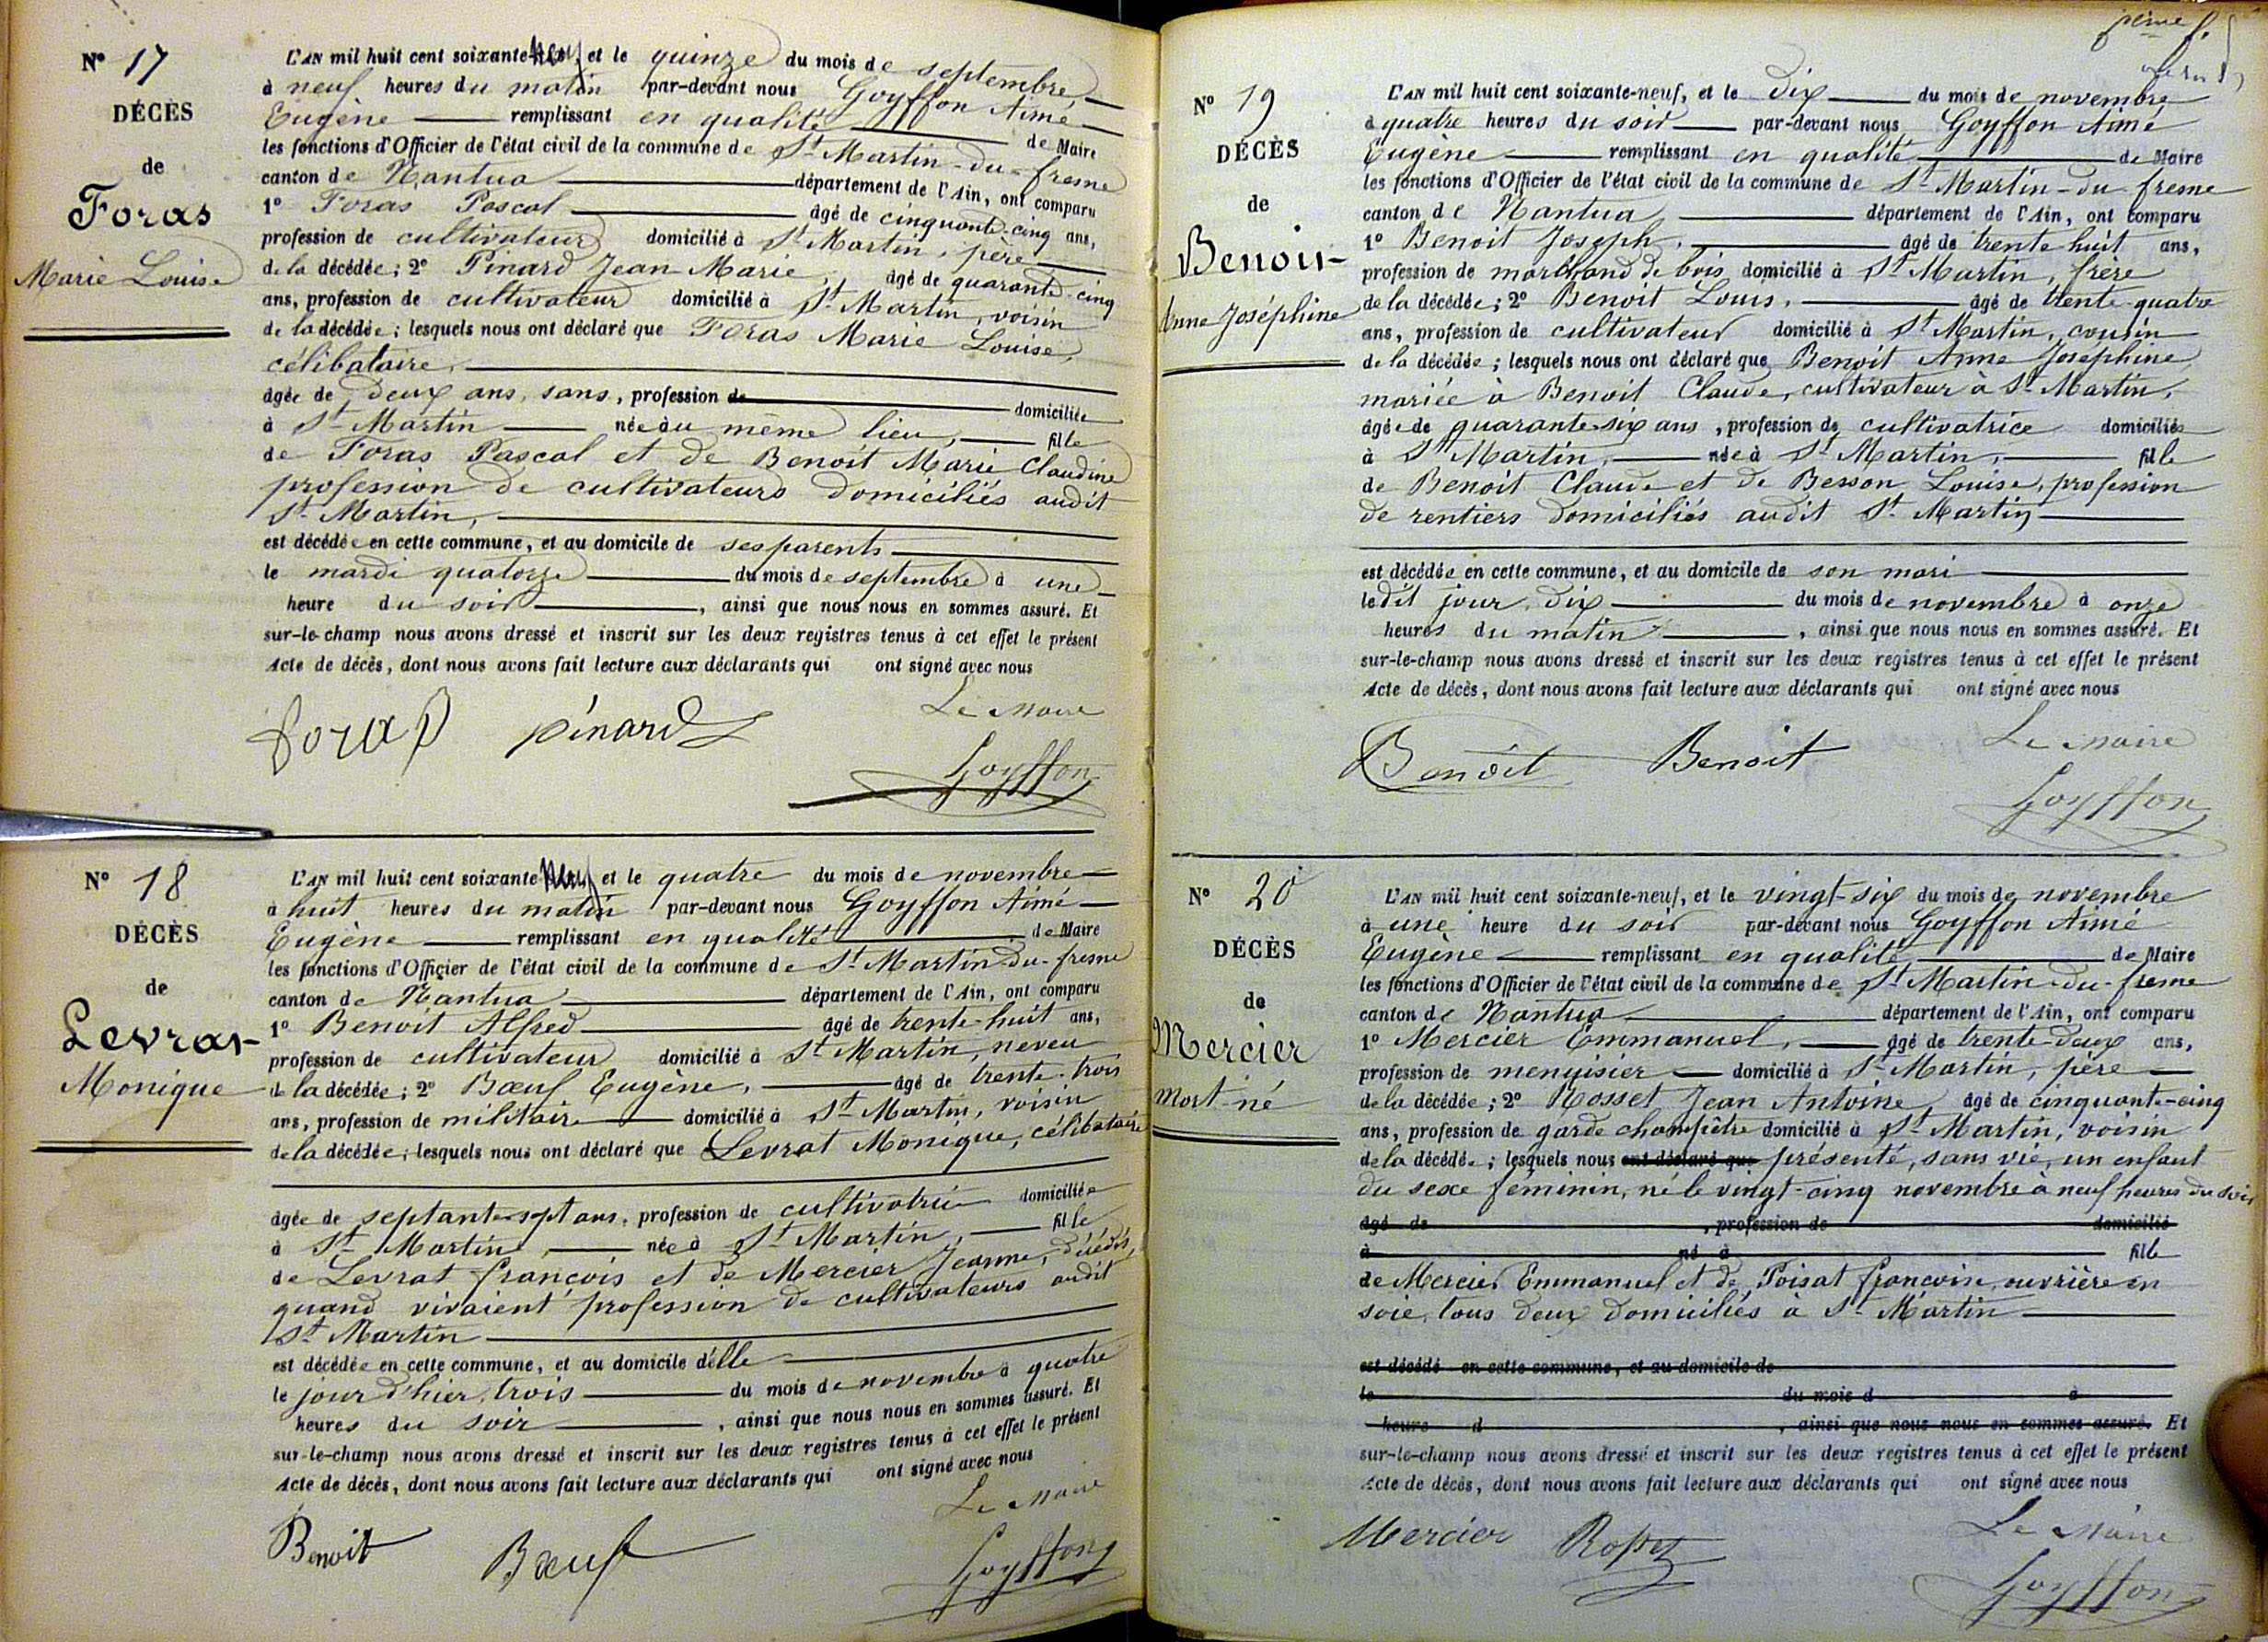 N° 17
DÉCÈS
de
Foras
Marie Louise
L'AN mil huit cent soixante-neuf, et le quinze du mois de septembre
à neuf heures du matin par-devant nous Goyffon Aimé
Eugène remplissant en qualité de Maire
les fonctions d'Officier de l'état civil de la commune de St Martin-du-fresne
canton de Nantua département de l'Ain, ont comparu
1° Foras Pascal âgé de cinquante-cinq ans,
profession de cultivateur domicilié à St Martin, père
de la décédée; 2° Pinard Jean Marie, âgé de quarante-cinq
ans, profession de cultivateur domicilié à St Martin, voisin
de la décédée; lesquels nous ont déclaré que Foras Marie Louise,
célibataire,
âgée de deux ans, sans, profession de domiciliée
à St Martin née au même lieu, fille
de Foras Pascal et de Benoit Marie Claudine
profession de cultivateurs domiciliés audit
St Martin,
est décédée en cette commune, et au domicile de ses parents
le mardi quatorze du mois de septembre à une
heure du soir, ainsi que nous nous en sommes assuré. Et
sur-le-champ nous avons dressé et inscrit sur les deux registres tenus à cet effet le présent
Acte de décès, dont nous avons fait lecture aux déclarants qui ont signé avec nous
Le Maire
foras pinard
Goyffon
N° 18
DÉCÈS
de
Levrat
Monique
L'AN mil huit cent soixante neuf et le quatre du mois de novembre
à huit heures du matin par-devant nous Goyffon Aimé
Eugène remplissant en qualité de Maire
les fonctions d'Officier de l'état civil de la commune de St Martin-du-fresne
canton de Nantua département de l'Ain, ont comparu
1° Benoit Alfred âgé de trente-huit ans,
profession de cultivateur domicilié à St Martin, neveu
de la décédée; 2° Bœuf Eugène, âgé de trente-trois
ans, profession de militaire domicilié à St Martin, voisin
de la décédée; lesquels nous ont déclaré que Levrat Monique, célibataire
âgée de septante-sept ans, profession de cultivatrice domiciliée
à St Martin, née à St Martin, fille
de Levrat françois et de Mercier Jeanne, décédés,
quand vivaient profession de cultivateurs audit
St Martin
est décédée en cette commune, et au domicile d'elle
le jour d'hier, trois du mois de novembre à quatre
heures du soir, ainsi que nous nous en sommes assuré. Et
sur-le-champ nous avons dressé et inscrit sur les deux registres tenus à cet effet le présent
Acte de décès, dont nous avons fait lecture aux déclarants qui ont signé avec nous
Le Maire
Benoit Bœuf
Goyffon
N° 19
DÉCÈS
de
Benoit
Anne Joséphine
L'AN mil huit cent soixante-neuf, et le dix du mois de novembre
à quatre heures du soir par-devant nous Goyffon Aimé
Eugène remplissant en qualité de Maire
les fonctions d'Officier de l'état civil de la commune de St Martin-du fresne
canton de Nantua, département de l'Ain, ont comparu
1° Benoit Joseph, âgé de trente huit ans,
profession de marchand de bois domicilié à St Martin, frère
de la décédée; 2° Benoit Louis, âgé de trente-quatre
ans, profession de cultivateur domicilié à St Martin, cousin
de la décédée; lesquels nous ont déclaré que Benoit Anne Joséphine,
mariée à Benoit Claude, cultivateur à St Martin,
âgée de quarante-six ans, profession de cultivatrice domiciliée
à St Martin, née à St Martin, fille
de Benoit Claude et de Besson Louise, profession
de rentiers domiciliés audit St Martin
est décédée en cette commune, et au domicile de son mari
le dit jour, dix du mois de novembre à onze
heures du matin, ainsi que nous nous en sommes assuré. Et
sur-le-champ nous avons dressé et inscrit sur les deux registres tenus à cet effet le présent
Acte de décès, dont nous avons fait lecture aux déclarants qui ont signé avec nous
Le Maire
Benoit Benoit
Goyffon
N° 20
DÉCÈS
de
Mercier
Mort-né
L'AN mil huit cent soixante-neuf, et le vingt-six du mois de novembre
à une heure du soir par-devant nous Goyffon Aimé
Eugène remplissant en qualité de Maire
les fonctions d'Officier de l'état civil de la commune de St Martin-du-fresne
canton de Nantua département de l'Ain, ont comparu
1° Mercier Emmanuel, âgé de trente-deux ans,
profession de menuisier domicilié à St Martin, père
de la décédée; 2° Rosset Jean Antoine âgé de cinquante-cinq
ans, profession de garde champêtre domicilié à St Martin, voisin
de la décédée; lesquels nous ont déclaré que présenté, sans vie, un enfant
du sexe féminin, né le vingt-cinq novembre à neuf heures du soir
âgé de, profession de domicilié
à né à fille
de Mercier Emmanuel et de Poisat françoise, ouvrière en
soie, tous deux domiciliés à St Martin
est décédé en cette commune, et au domicile de
le du mois d à
heure d, ainsi que nous nous en sommes assuré. Et
sur-le-champ nous avons dressé et inscrit sur les deux registres tenus à cet effet le présent
Acte de décès, dont nous avons fait lecture aux déclarants qui ont signé avec nous
Le Maire
Mercier Rosset
Goyffon